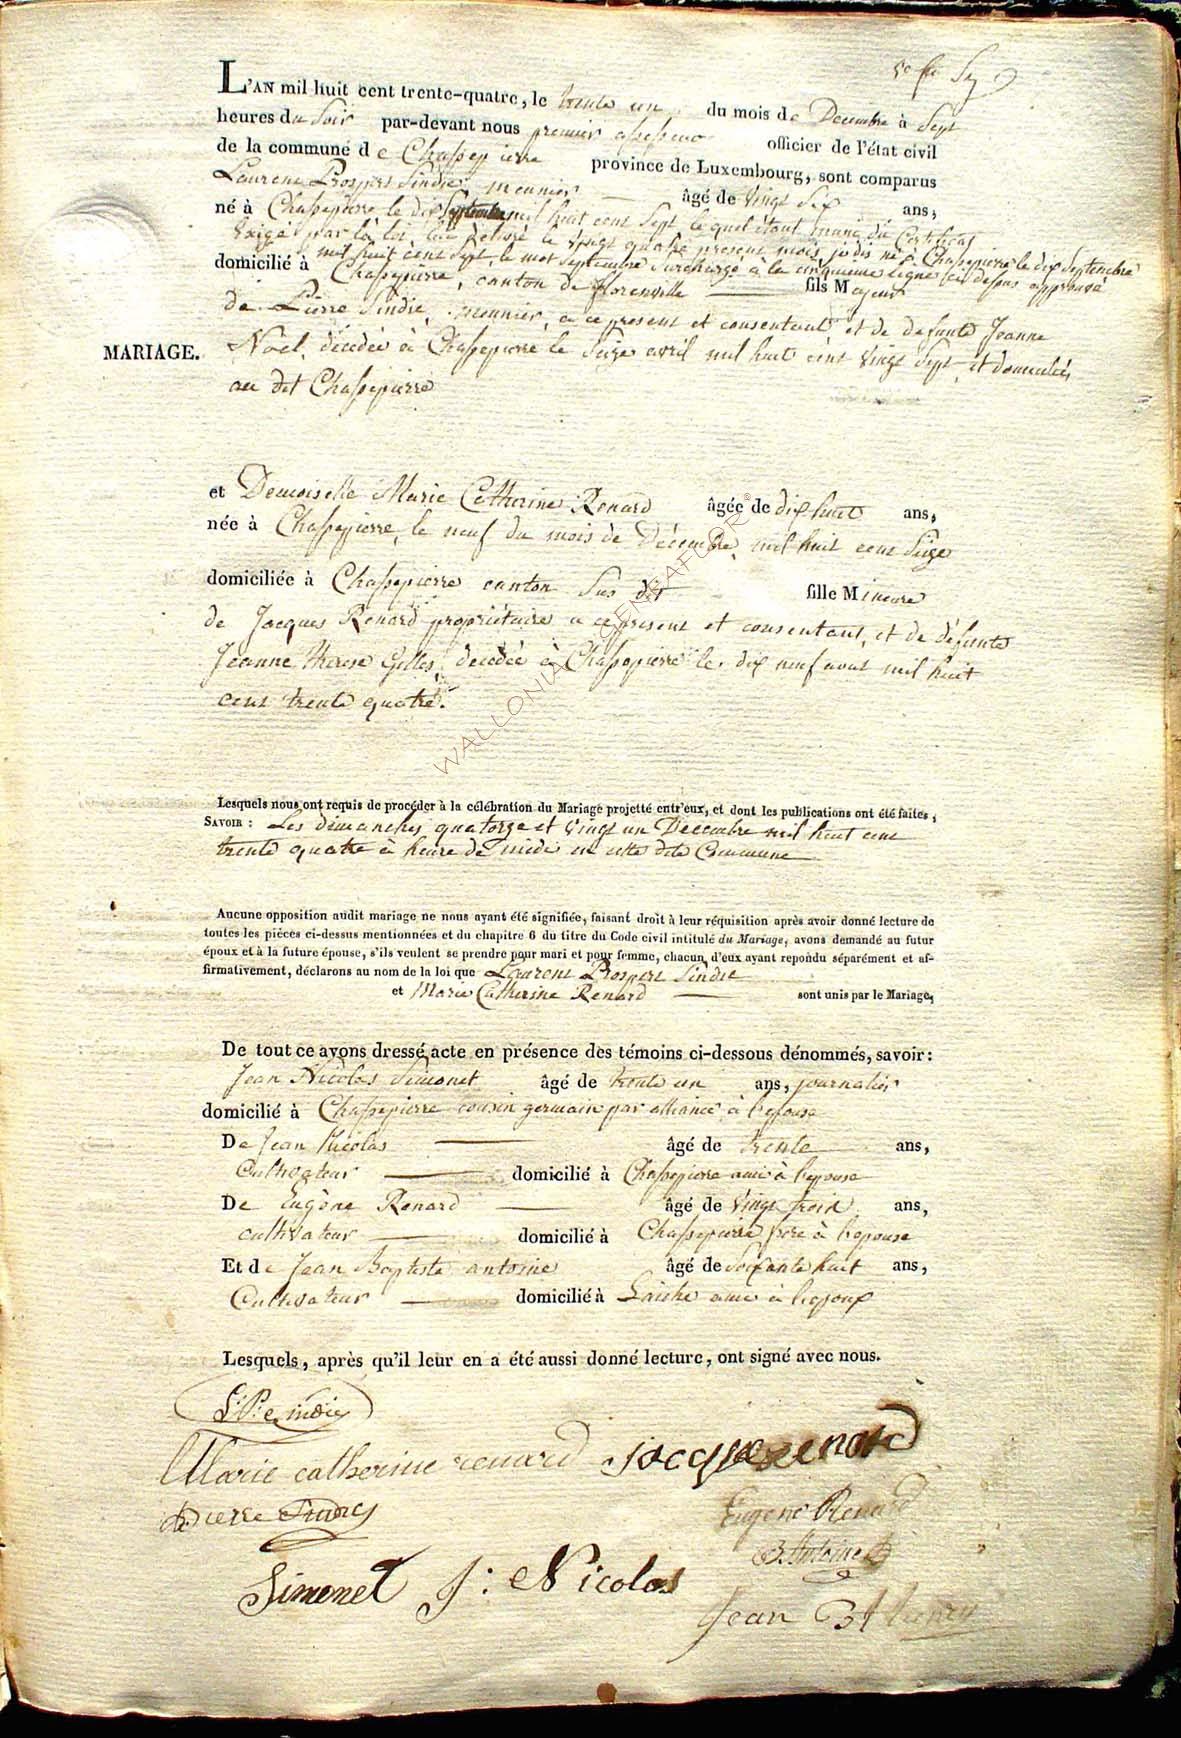 L'AN mil huit cent trente-quatre, le trente un du mois de Decembre à Sept
heures du Soir par-devant nous premier assesseur officier de l'état civil
de la commune de Chassepierre province de Luxembourg, sont comparus
Laurent Prospère Sindic meunier âgé de vingt Six ans,
né à Chassepierre le dix Septembre mil huit cent Sept lequel étant muni du Certificat
Exigé par la loi, lui délivré le vingt quatre present mois, je dis né à Chassepierre le dix Septembre
mil huit cent Sept le mot Septembre Surchargé à la cinquieme ligne ci dessus approuvé
domicilié à Chassepierre, canton de florenville fils Majeur
de Pierre Sindic, meunier, a ce present et consentant et de defunte Jeanne
MARIAGE.
Noel, décédée à Chassepierre le Seize avril mil huit cent vingt Sept, et domiciliés
au dit Chassepierre
et Demoiselle Marie Catherine Renard âgée de dix huit ans,
née à Chassepierre, le neuf du mois de Décembre, mil huit cent Seize
domiciliée à Chassepierre canton Sus dit fille Mineure
de Jacques Renard propriétaire a ce present et consentant, et de défunte
Jeanne therese Gilles, décédée à Chassepierre le dix neuf aout mil huit
cent trente quatre.
WALLONIA GENEAFUOR©
Lesquels nous ont requis de procéder à la célébration du Mariage projetté entr'eux, et dont les publications ont été faites,
SAVOIR : Les dimanches quatorze et vingt un Decembre mil huit cent
trente quatre à heure de midi en cette dite Commune
Aucune opposition audit mariage ne nous ayant été signifiée, faisant droit à leur réquisition après avoir donné lecture de
toutes les pièces ci-dessus mentionnées et du chapitre 6 du titre du Code civil intitulé du Mariage, avons demandé au futur
époux et à la future épouse, s'ils veulent se prendre pour mari et pour femme, chacun d'eux ayant repondu séparément et af-
firmativement, déclarons au nom de la loi que Laurent Prospere Sindic
et Marie Catherine Renard sont unis par le Mariage,
De tout ce avons dressé acte en présence des témoins ci-dessous dénommés, savoir:
Jean Nicolas Simonet âgé de trente un ans, journalier
domicilié à Chassepierre cousin germain par alliance à l'epouse
De Jean Nicolas âgé de trente ans,
Cultivateur domicilié à Chassepierre ami à l'epouse
De Eugène Renard âgé de vingt trois ans,
cultivateur domicilié à Chassepierre frere à l'epouse
Et de Jean Baptiste antoine âgé de Soixante huit ans,
Cultivateur domicilié à Laiche ami à l'epoux
Lesquels, après qu'il leur en a été aussi donné lecture, ont signé avec nous.
L: P: Sindic
Marie catherine renard jacque renard
Pierre Sindic Eugene Renard
Antoine
Simonet J: Nicolas
Jean